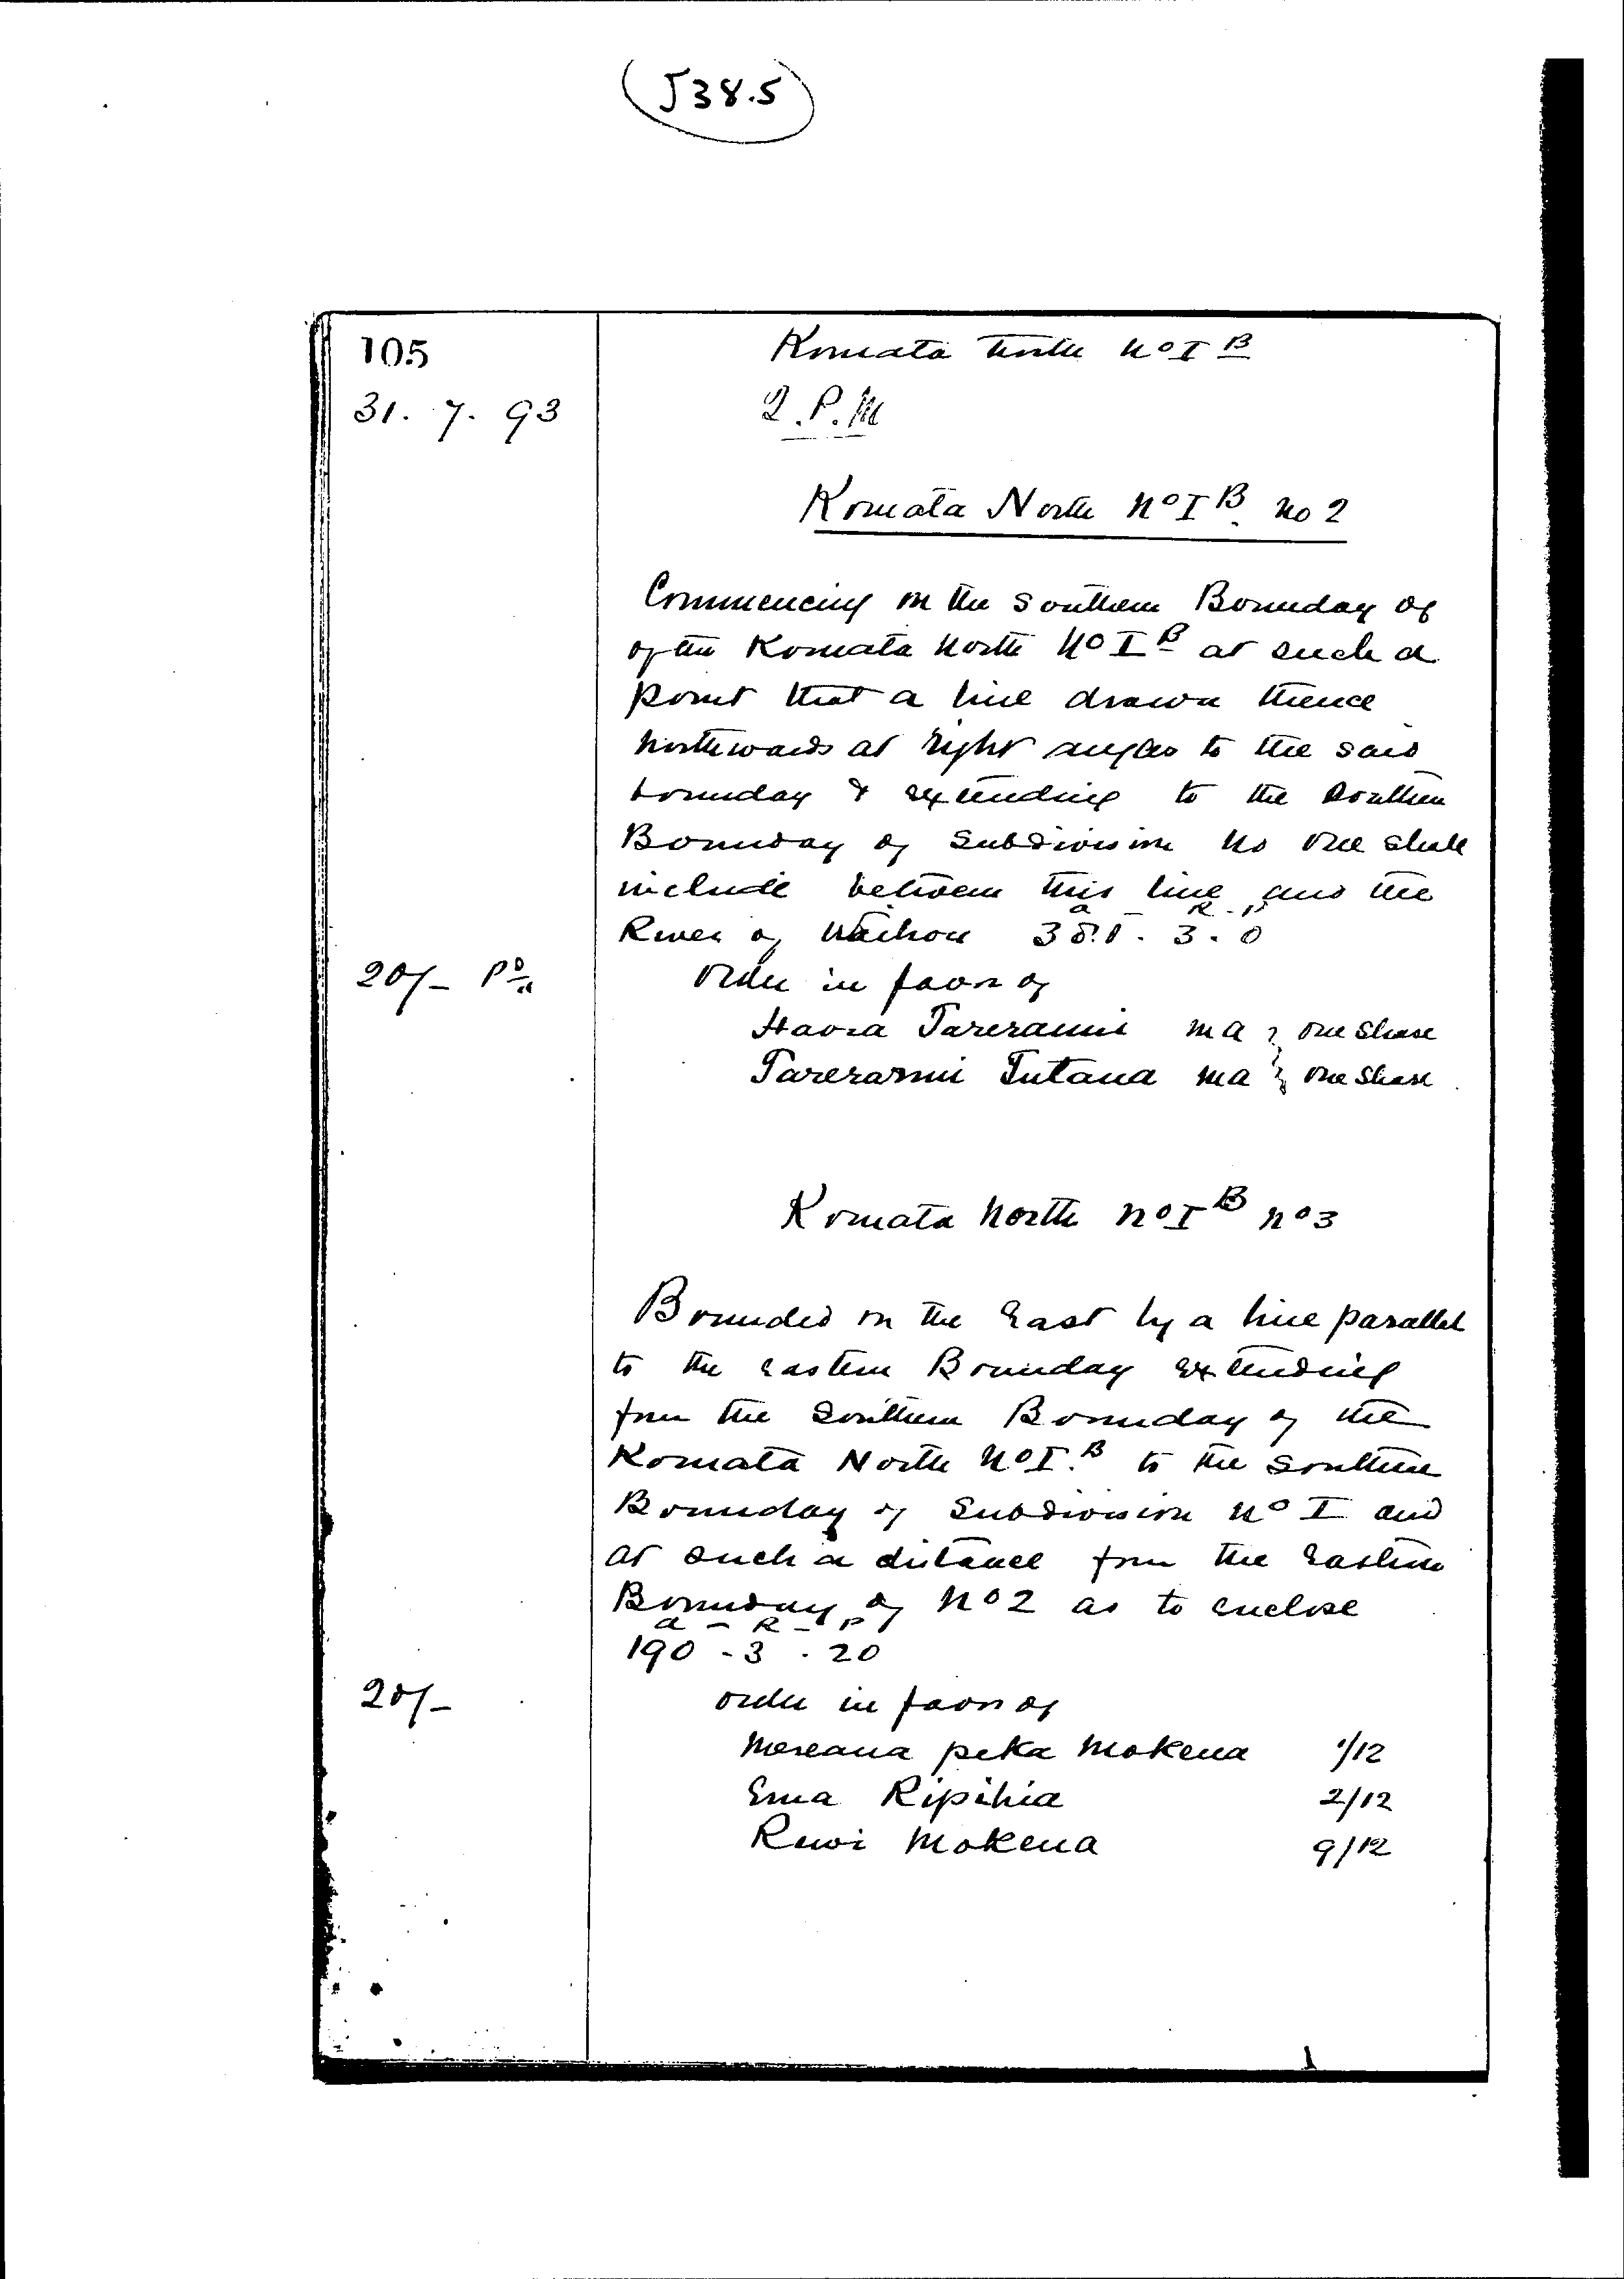 J38.5
105
Komata North No I B
31. 7. 93
2.P.M
Komata North No I B No 2
Commencing on the Southern Bounday of
of the Komata North No I B at such a
point that a line drawn thence
Northwards at right angles to the said
bounday & extending to the Southern
Bounday of Subdivision No One shall
include between this line and the
a R P
River of Waihou 3 . 3 . 0
20/- Pd
Order in favor of
Haora Tareranui ma } one share
Tareranui Tutana ma } one share
Komata North No I B No 3
Bounded on the East by a line parallel
to the eastern Bounday extending
from the Southern Bounday of the
Komata North No I. B to the Southern
Bounday of Subdivision No I and
at such a distance from the Eastern
Bounday of No 2 as to enclose
a - R - P
190 - 3 . 20
20/-
order in favor of
Mereana peka Mokena 1/12
Ema Ripihia 2/12
Rewi Mokena 9/12